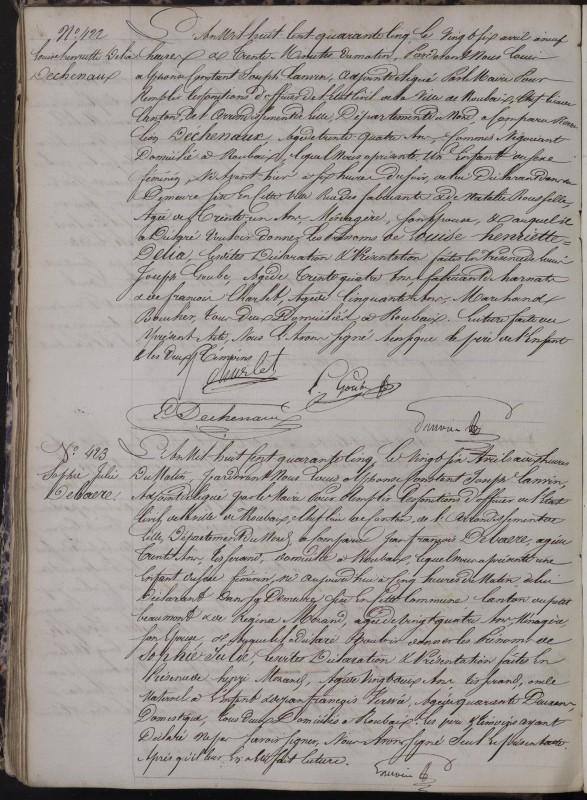 N° 422
Louise henriette Delia
Dechenaux
L'An Mil huit Cent quarante Cinq le Vingt Six avril à neuf
heures & Trente Minutes du matin, Pardevant Nous Louis
Alphonse Constant Joseph Lanvin, Adjoint délégué Par le Maire Pour
Remplir les fonctions d'officier de l'Etat Civil de la Ville de Roubaix, Chef lieu
Canton de l'Arrondissement de Lille, Département du Nord, a Comparu
Léon Dechenaux, Agé de trente quatre Ans, Négociant
Domicilié à Roubaix, lequel Nous a présenté Un Enfant du sexe
féminin, Né Avant hier à six heures du soir, de lui Déclarant dans sa
Demeure Sise en Cette Ville Rue des fabricants & de Natalie Rousselle
Agée de Trente un Ans, Ménagère, Son épouse, & auquel il
a Déclaré Vouloir Donner les Prénoms de Louise henriette
Delia, lesdites Déclaration & Présentation faites en Présence de
Joseph Goube, Agé de Trente quatre Ans, fabricant
& de françois Charlet, Agé de Cinquante Ans, Marchand
Boucher, Tous Deux Domiciliés à Roubaix. Lecture faite du
Présent Acte, Nous l'Avons Signé Ainsi que le père de l'Enfant
& les Deux Témoins
Charlet
Goube
L Dechenaux
Lanvin
N° 423
Sophie Julie
Debaere
L'An Mil huit Cent quarante Cinq, le Vingt Six Avril à dix heures
Du Matin, pardevant Nous Louis Alphonse Constant Joseph Lanvin,
Adjoint délégué par le Maire Pour Remplir les fonctions d'officier de l'Etat
Civil de la Ville de Roubaix, Chef lieu de Canton de l'Arrondissement de
Lille, Département du Nord, a Comparu Jean François Debaere, agé de
Trente Ans, tisserand, domicilié à Roubaix, lequel Nous a présenté Un
Enfant du sexe féminin, né aujourd'hui à Cinq heures du Matin, de lui
Déclarant Dans sa Demeure Sise en Cette Commune Canton du petit
beaumont & de Régina Morand, agée de vingt quatre Ans, Ménagère
Son épouse, & auquel il a déclaré Vouloir donner les Prénoms de
Sophie Julie, lesdites Déclaration & Présentation faites En
Présence de henri Morand, Agé de Vingt deux Ans tisserand, oncle
Maternel à l'Enfant & de Jean françois Agé de quarante Deux Ans
Domestique, tous Deux Domiciliés à Roubaix Les père & témoins ayant
Déclaré Ne pas Savoir Signer, Nous Avons Signé Seul le présent Acte
Après qu'il leur En a été fait lecture.
Lanvin